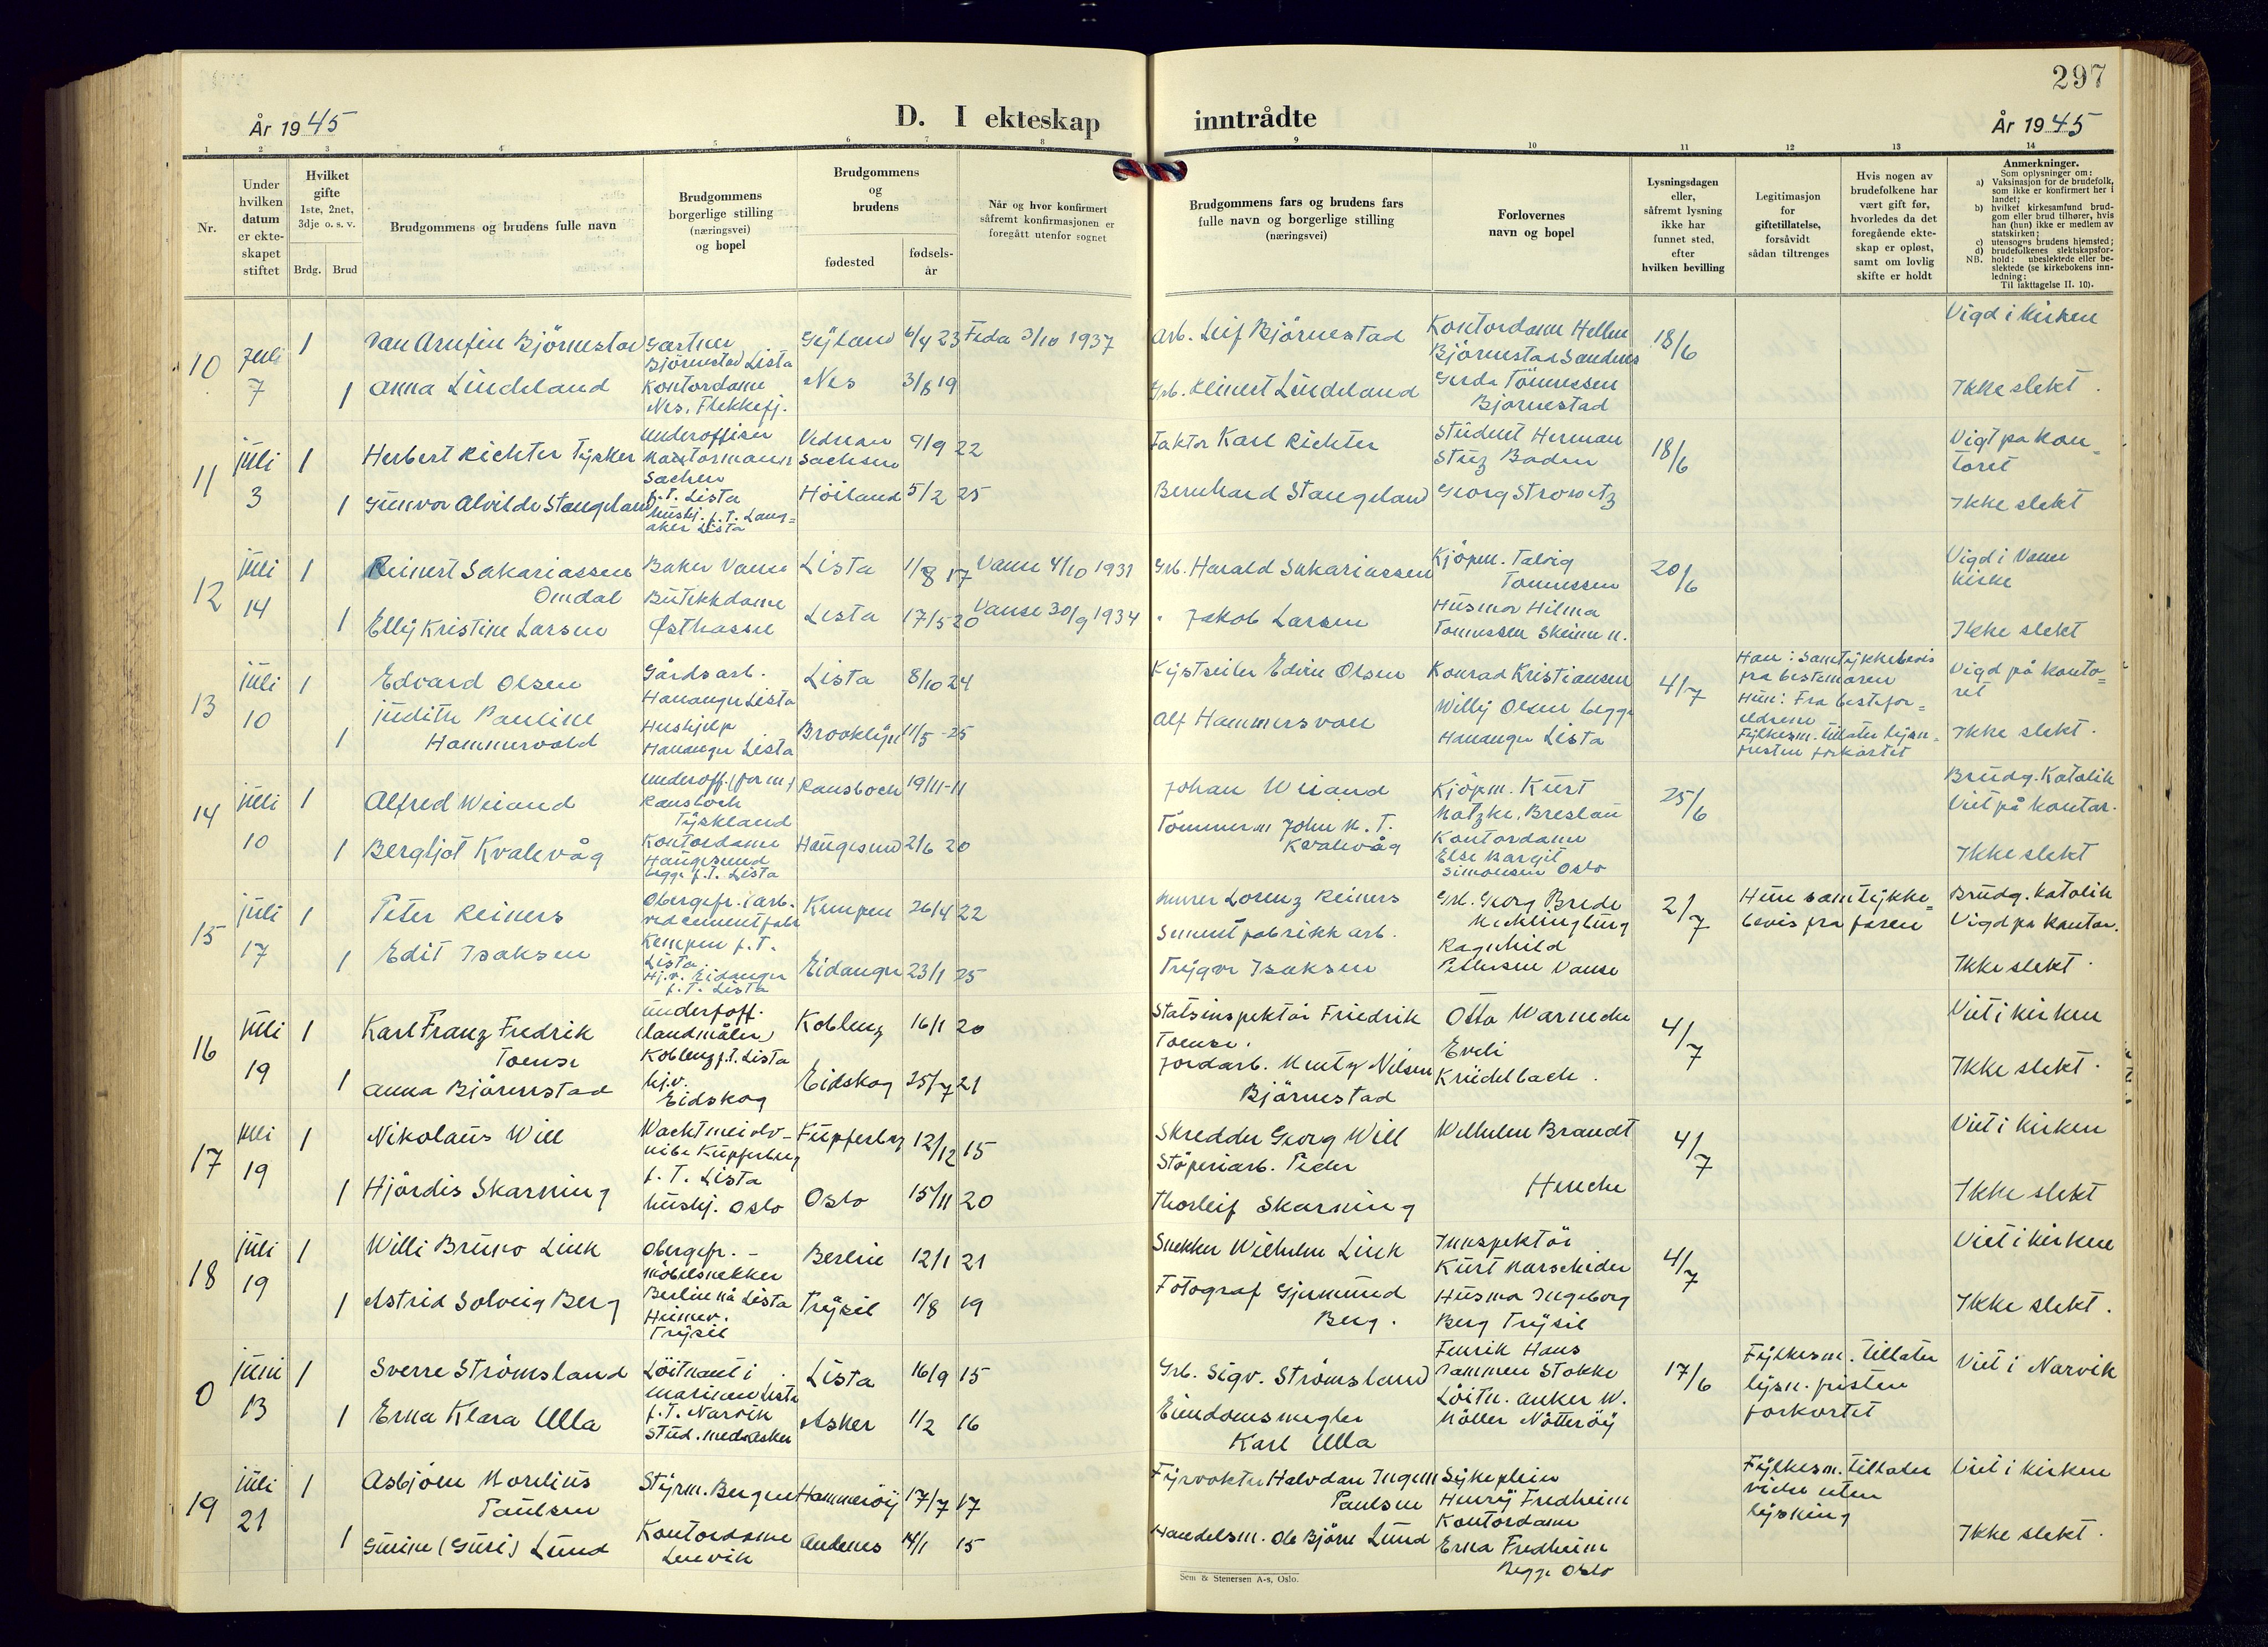 297
År 1945
D. I ekteskap
inntrådte
År 1945
1 2 3 4 5 6 7 8 9 10 11 12 13 14
Nr.
Under
hvilken
datum
er ekte-
skapet
stiftet
Hvilket
gifte
1ste, 2net,
3dje o. s. v.
Brdg. Brud
Brudgommens og brudens fulle navn
Brudgommens
borgerlige stilling
(næringsvei)
og bopel
Brudgommens
og
brudens
fødested
fødsels-
år
Når og hvor konfirmert
såfremt konfirmasjonen er
foregått utenfor sognet
Brudgommens fars og brudens fars
fulle navn og borgerlige stilling
(næringsvei)
Forlovernes
navn og bopel
Lysningsdagen
eller,
såfremt lysning
ikke har
funnet sted,
efter
hvilken bevilling
Legitimasjon
for
giftetillatelse,
forsåvidt
sådan tiltrenges
Hvis nogen av
brudefolkene har
vært gift før,
hvorledes da det
foregående ekte-
skap er opløst,
samt om lovlig
skifte er holdt
Anmerkninger.
Som oplysninger om:
a) Vaksinasjon for de brudefolk,
som ikke er konfirmert her i
landet;
b) hvilket kirkesamfund brud-
gom eller brud tilhører, hvis
han (hun) ikke er medlem av
statskirken;
c) utensogns brudens hjemsted;
d) brudefolkenes slektskapsfor-
hold: ubeslektede eller be-
slektede (se kirkebokens inn-
ledning;
NB.
Til iakttagelse II. 10).
10
juli
7
1
Jan Arnfin Björnestad
Gartner
Björnestad Lista
Gyland
6/4 23
Feda 3/10 1937
Arb. Leif Björnestad
Kontordame Hellen
Björnestad Sandnes
18/6
Vigd i kirken
1
Anna Lindeland
Kontordame
Nes, Flekkefj.
Nes
3/8 19
Grb. Reinert Lindeland
Gerda Tönnessen
Björnestad
Ikke slekt.
11
juli
3
1
Herbert Richter Tysker
Underoffiser
Kontormann
Sachsen
f.T. Lista
Sachsen
9/9 22
Faktor Karl Richter
Student Herman
Stuz Baden
18/6
Vigt på kon-
toret
1
Gunvor Alvilde Stangeland
hushj. f.T. Lang-
aker Lista
Höiland
5/2 25
Bernhard Stangeland
Georg Strowitz
Ikke slekt
12
juli
14
1
Reinert Sakariassen
Omdal
Baker Vanse
Lista
1/8 17
Vanse 4/10 1931
Grb. Harald Sakariassen
Kjöpm. Talvig
Tönnessen
20/6
Vigd i Vanse
kirke
1
Elly Kristine Larsen
Butikkdame
Østhassel
Lista
17/5 20
Vanse 30/9 1934
" Jakob Larsen
Husmor Hilma
Tönnessen Skeime n.
Ikke slekt
13
juli
10
1
Edvard Olsen
Gårdsarb.
Hananger Lista
Lista
8/10 24
Kystseiler Edvin Olsen
Konrad Kristiansen
4/7
Han: Samtykkebevis
fra bestemoren
Vigd på konto-
ret
1
Judith Pauline
Hammervold
Hushjelp
Hananger Lista
Brooklyn
11/5-25
Alf Hammersvoll
Willy Olsen begge
Hananger Lista
Hun: Fra bestefor-
eldrene
Fylkesm. tillater lysn.-
fristen forkortet
Ikke slekt.
14
juli
10
1
Alfred Weiand
Underoff. (form.)
Ransbach
Tyskland
Ransbach
19/11-11
Johan Weiand
Kjöpm. Kurt
Matzke, Breslau
25/6
Brudg. Katolik
Viet på kontor.
1
Bergljot Kvalevåg
Kontordame
Haugesund
begge f.T. Lista
Haugesund
2/6 20
Tömmerm John M. T.
Kvalevåg
Kontordame
Else Margit
Simonsen Oslo
Ikke slekt
15
juli
17
1
Peter Reiners
Obergefr. (arb.
ved cementfabr
Kempen f.T.
Lista
Kempen
26/4 22
Murer Lorenz Reiners
Grb. Georg Brede
Mecklingburg
2/7
Hun samtykke-
bevis fra faren
Brudg. Katolik
Vigd på kontor.
1
Edit Isaksen
Hj.v. Eidanger
f.T. Lista
Eidanger
23/1 25
Sementfabrikk arb.
Trygve Isaksen
Ragnhild
Pettersen Vanse
Ikke slekt.
16
juli
19
1
Karl Franz Fredrik
Toense
Underoff.
(landmåler)
Koblenz f.T. Lista
Koblenz
16/1 20
Statsinspektör Friedrik
Toense.
Otto Warnecke
4/7
Viet i kirken
1
Anna Björnestad
hj.v.
Eidskog
Eidskog
25/7 21
Jordarb. Mentz Nilsen
Björnestad
Eveli
Krüdelbach.
Ikke slekt.
17
juli
19
1
Nikolaus Will
Kupferberg
f.T. Lista
Kupferberg
12/12 15
Skredder Georg Will
Wilhelm Brandt
4/7
Viet i kirken
1
Hjördis Skarning
hushj. Oslo
Oslo
15/11 20
Stöperiarb. Peder
Thorleif Skarning
Hencke
Ikke slekt
18
juli
19
1
Willi Bruno Link
Obergefr. -
möbelsnekker
Berlin nå Lista
Berlin
12/1 21
Snekker Wilhelm Link
Innspektör
Kurt Marscheider
4/7
Viet i kirken
1
Astrid Solveig Berg
Heimev.
Trysil
Trysil
1/8 19
Fotograf Gjermund
Berg.
Husmor Ingeborg
Berg Trysil
Ikke slekt.
0
juni
13
1
Sverre Strömsland
Löitnant i
marinen Lista
f.T. Narvik
Lista
16/9 15
Grb. Sigv. Strömsland
Fenrik Hans
Jammen Stokke
17/6
Fylkesm. tillater
lysn. fristen
forkortet
Viet i Narvik
1
Erna Klara Ulla
Stud. med. Asker
Asker
1/2 16
Eiendomsmegler
Karl Ulla
Löitn. Anker W.
Möller Nötteröy
19
juli
21
1
Asbjörn Morelius
Paulsen
Styrm. Bergen
Hammeröy
17/7 17
Fyrvokter Halvdan Ingem
Paulsen
Sykepleier
Henry Fredheim
Fylkesm. tillater
vielse uten
lysning
Viet i kirken
1
Gurine (Guri) Lund
Kontordame
Lenvik
Andenes
14/1 15
Handelsm. Ole Björn Lund
Kontordame
Erna Fredheim
Begge Oslo
Ikke slekt.
Sem & Stenersen A-s, Oslo.